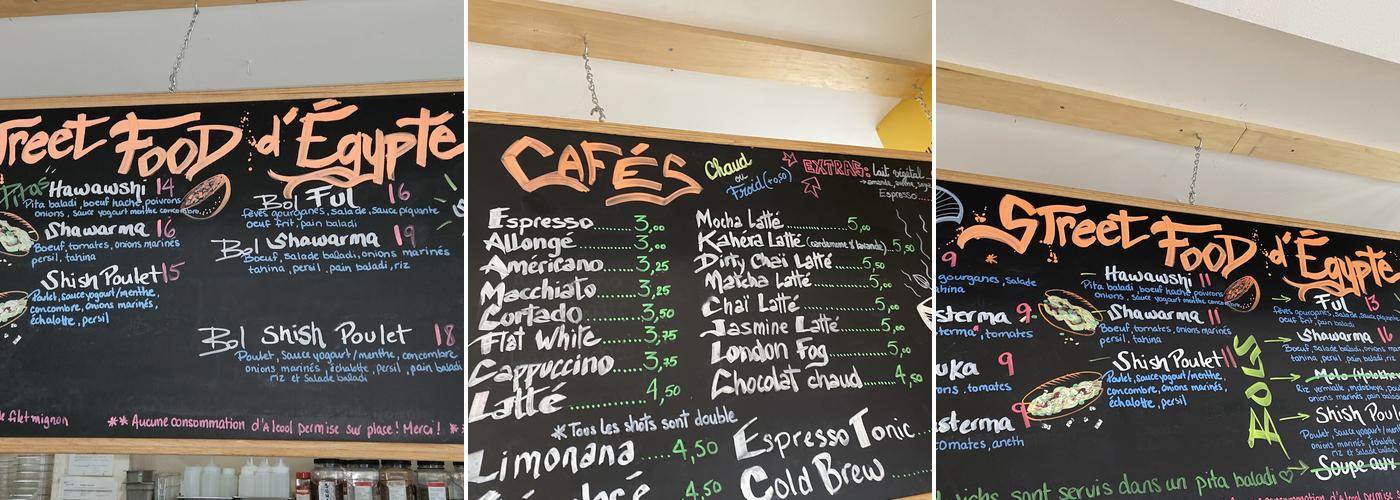 Street Food d'Égypte
Hawawshi 14
Pita baladi, boeuf haché, poivrons
onions, sauce yogourt menthe concombre
Shawarma 16
Boeuf, tomates, onions marinés
persil, tahina
Shish Poulet 15
Poulet, sauce yogourt/menthe,
concombre, onions marinés,
échalotte, persil
Bol Ful 16
Fèves gourganes, salade, sauce piquante
oeuf frit, pain baladi
Bol Shawarma 19
Boeuf, salade baladi, onions marinés
tahina, persil, pain baladi, riz
Bol Shish Poulet 18
Poulet, sauce yogourt/menthe, concombre
onions marinés, échalotte, persil, pain baladi
riz et salade baladi
* filet mignon
** Aucune consommation d'Alcool permise sur place! Merci! *
CAFÉS
Chaud
ou
Froid (+0,50)
EXTRAS: Lait végétal
Espresso
Espresso 3,00
Allongé 3,00
Américano 3,25
Macchiato 3,25
Cortado 3,50
Flat White 3,75
Cappuccino 3,75
Latté 4,50
Mocha Latté 5,00
Kahéra Latté (cardamome & lavande) 5,50
Dirty Chaï Latté 5,50
Matcha Latté 5,00
Chaï Latté 5,00
Jasmine Latté 5,00
London Fog 5,00
Chocolat chaud 4,50
*Tous les shots sont double
Limonana 4,50
4,50
Espresso Tonic
Cold Brew
Street Food d'Égypte
9
gourganes, salade
sterma 9
, tomates
uka 9
ons, tomates
sterma 9
tomates, aneth
Hawawshi 11
Pita baladi, boeuf haché, poivrons
onions, sauce yogourt menthe concombre
Shawarma 11
Boeuf, tomates, onions marinés
persil, tahina
Shish Poulet 11
Poulet, sauce yogourt/menthe,
concombre, onions marinés,
échalotte, persil
BOLS
Ful 13
Fèves gourganes, salade, sauce piquante
oeuf frit, pain baladi
Shawarma 16
Boeuf, salade baladi, onions
tahina, persil, pain baladi, riz
Shish Poul
Poulet, sauce yogourt/menthe
onions marinés, échalotte
riz et salade baladi
Soupe aux
sont servis dans un pita baladi